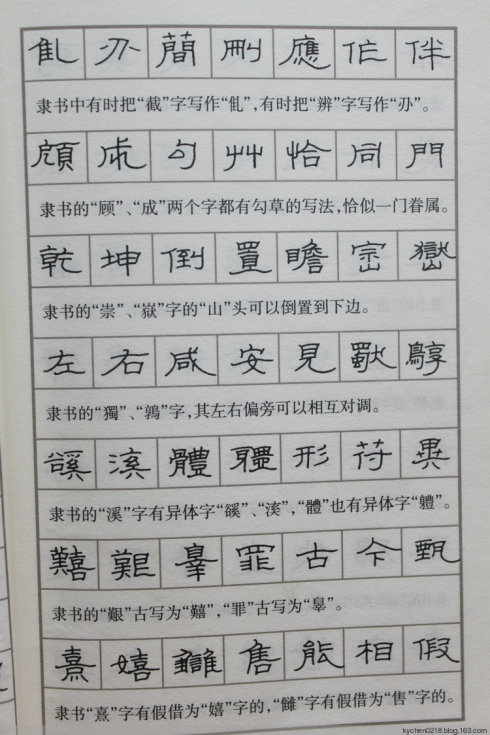 𠃵 刅 蕳 刪 應 伫 伴
隶书中有时把“截”字写作“𠃵”,有时把“辨”字写作“刅”。
頋 成 勾 艸 恰 同 門
隶书的“顾”、“成”两个字都有勾草的写法,恰似一门眷属。
乾 坤 倒 置 瞻 崈 嶽
隶书的“崇”、“嶽”字的“山”头可以倒置到下边。
左 右 咸 安 見
隶书的“獨”、“鶉”字,其左右偏旁可以相互对调。
谿 溪 體 軆 形 符 異
隶书的“溪”字有异体字“谿”、“渓”,“體”也有异体字“軆”。
囏 艱 辠 罪 古 今 甄
隶书的“艱”古写为“囏”,“罪”古写为“辠”。
熹 嬉 雦 售 能 相 假
隶书“熹”字有假借为“嬉”字的,“雦”字有假借为“售”字的。
kychen0218.blog.163.com